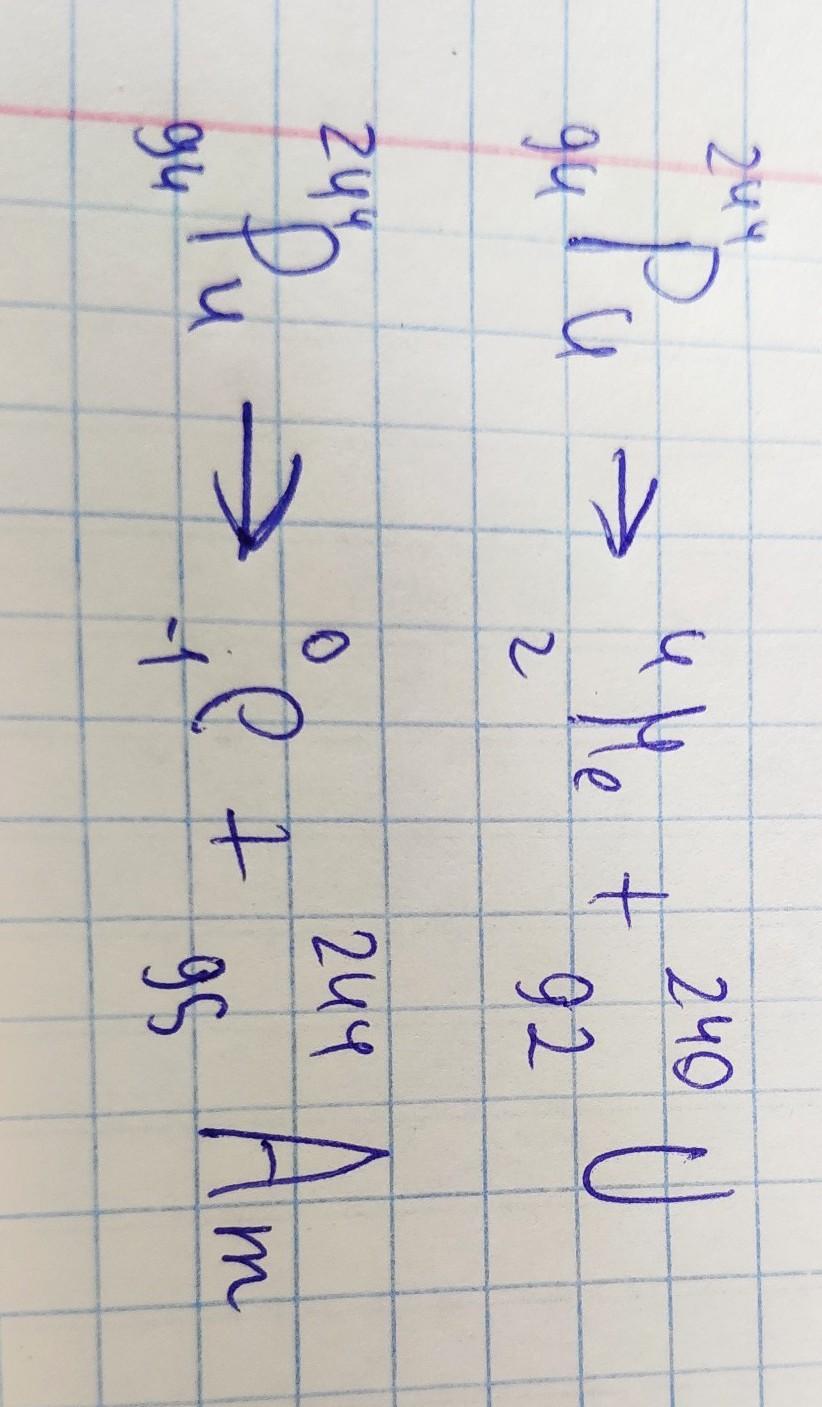 ²⁴⁴₉₄Pu → ⁴₂He + ²⁴⁰₉₂U
²⁴⁴₉₄Pu → ⁰₋₁e + ²⁴⁴₉₅Am